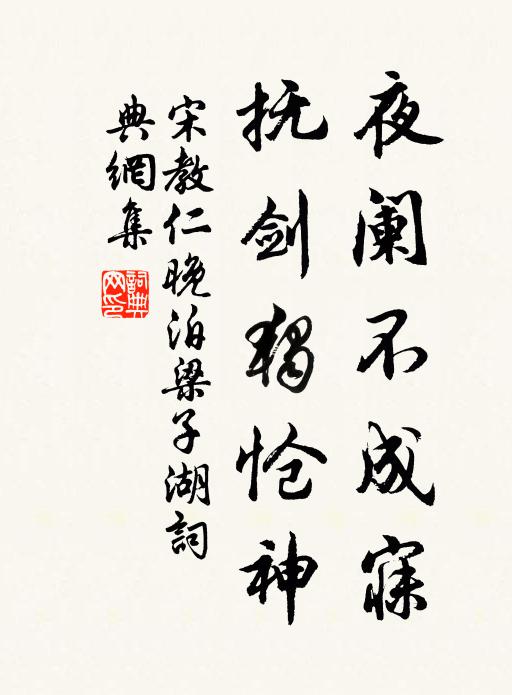 夜阑不成寐
抚剑独怆神
宋教仁晚泊梁子湖詞
典網集
詞典網印